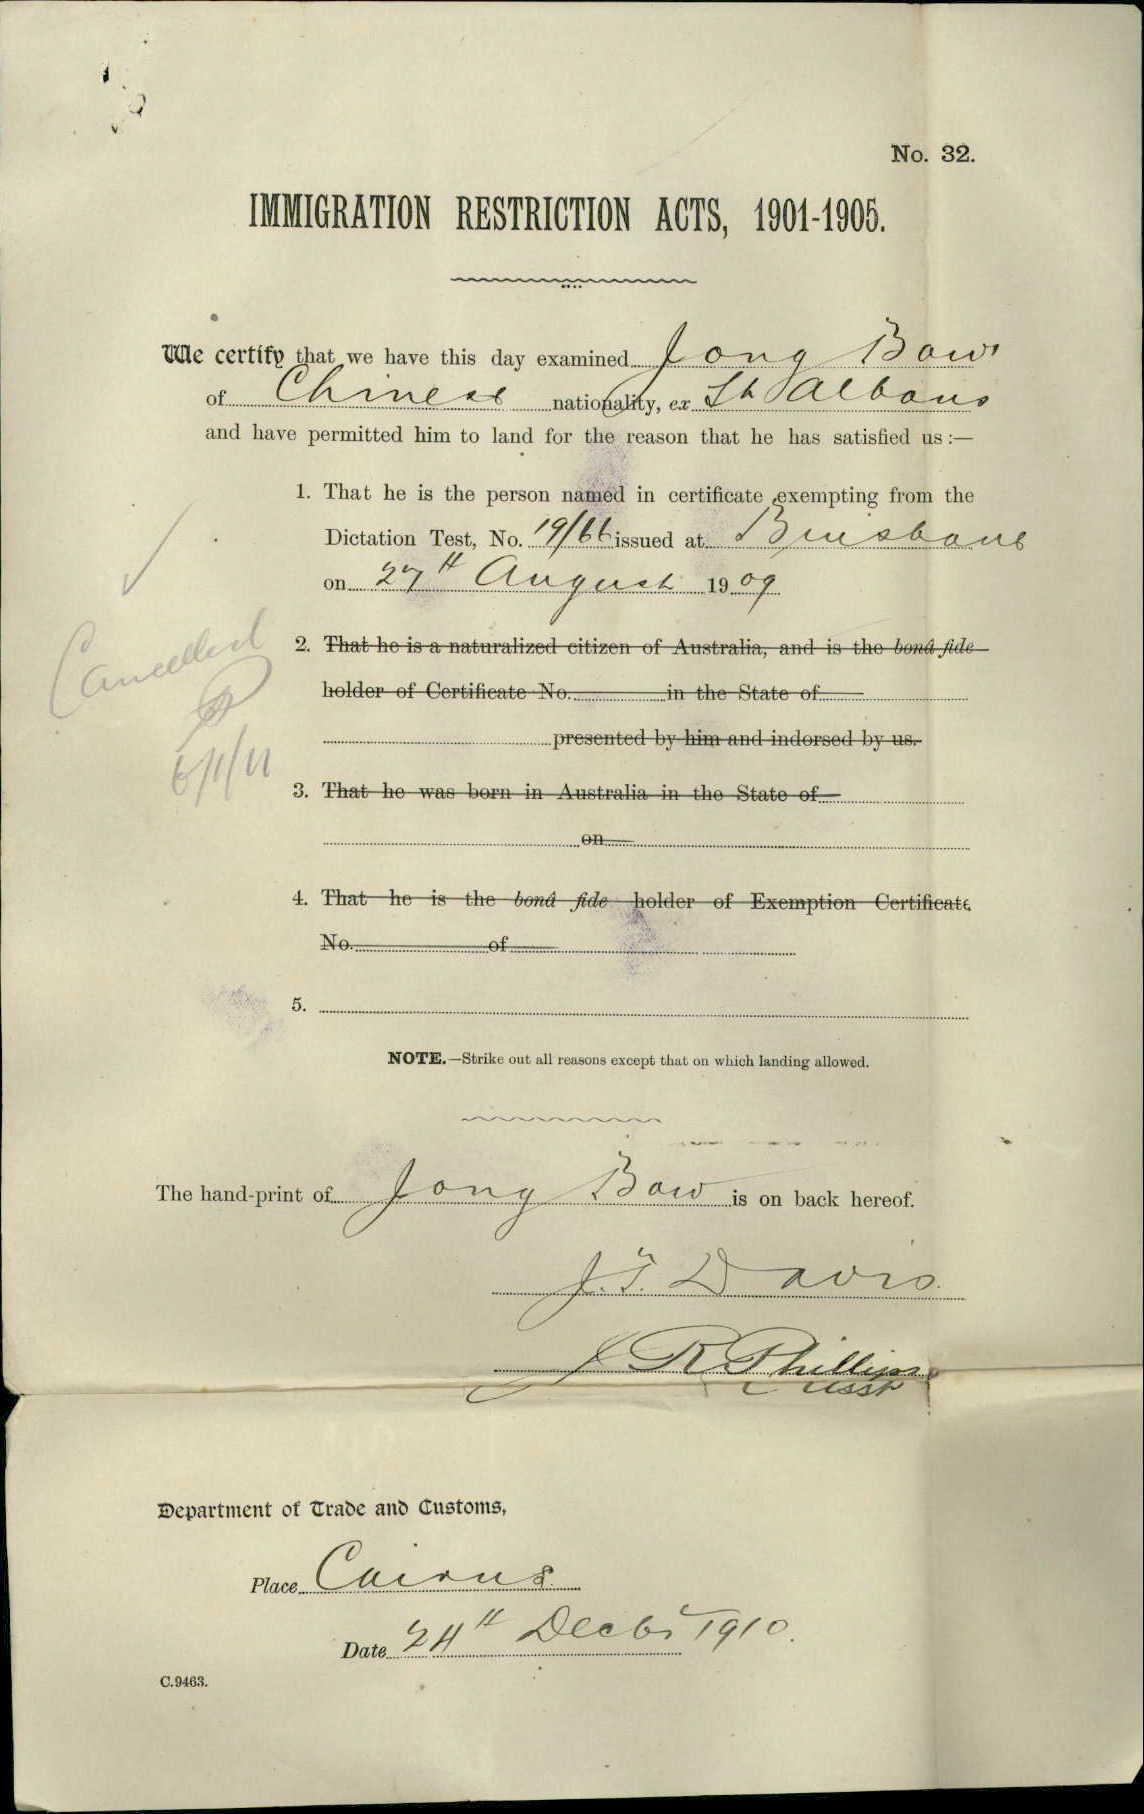 No. 32.
IMMIGRATION RESTRICTION ACTS, 1901-1905.
We certify that we have this day examined Jong Bow
of Chinese nationality, ex St Albans
and have permitted him to land for the reason that he has satisfied us :—
1. That he is the person named in certificate exempting from the
Dictation Test, No. 19/66 issued at Brisbane
on 27th August 1909
Cancelled
6/1/11
2. That he is a naturalized citizen of Australia, and is the bonâ fide
holder of Certificate No. in the State of
presented by him and indorsed by us.
3. That he was born in Australia in the State of
on
4. That he is the bonâ fide holder of Exemption Certificate
No. of
5.
NOTE.—Strike out all reasons except that on which landing allowed.
The hand-print of Jong Bow is on back hereof.
J. T. Davis.
J R Phillips
Asst
Department of Trade and Customs,
Place Cairns.
Date 24th Decbr 1910.
C.9463.